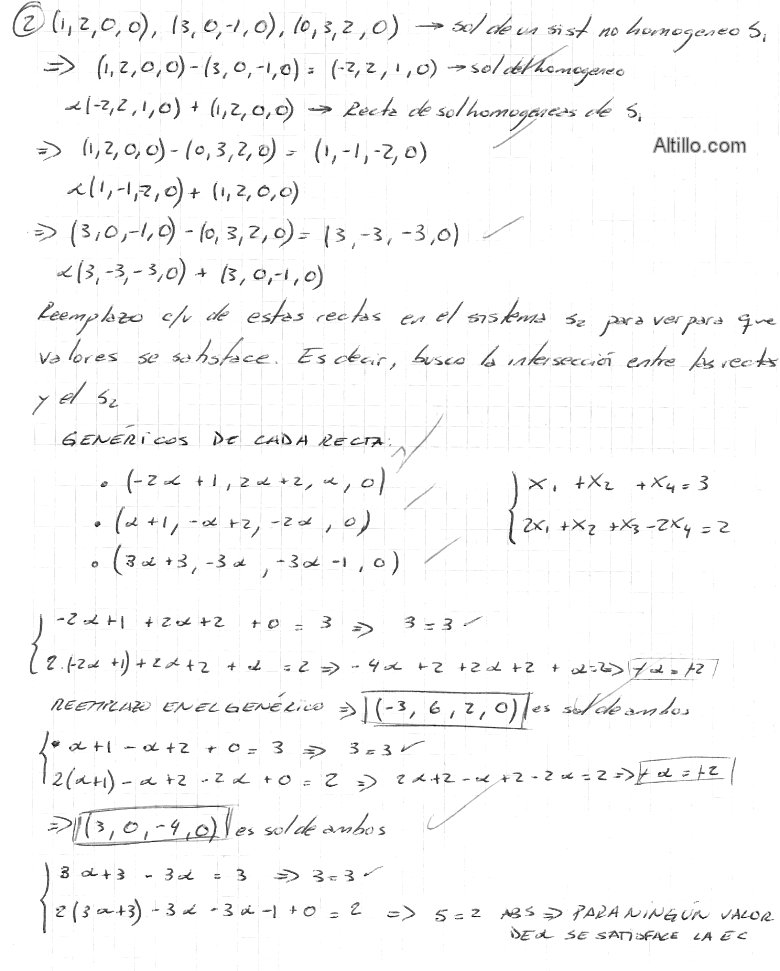 ② (1,2,0,0), (3,0,-1,0), (0,3,2,0) → sol de un sist no homogeneo S₁
⇒ (1,2,0,0)-(3,0,-1,0) = (-2,2,1,0) → sol del homogeneo
α(-2,2,1,0) + (1,2,0,0) → Recta de sol homogeneas de S₁
Altillo.com
⇒ (1,2,0,0)-(0,3,2,0) = (1,-1,-2,0)
α(1,-1,-2,0) + (1,2,0,0)
⇒ (3,0,-1,0)-(0,3,2,0) = (3,-3,-3,0)
α(3,-3,-3,0) + (3,0,-1,0)
Reemplazo c/u de estas rectas en el sistema S₂ para ver para que
valores se satisface. Es decir, busco la intersección entre las rectas
y el S₂
GENÉRICOS DE CADA RECTA:
• (-2α+1, 2α+2, α, 0)
• (α+1, -α+2, -2α, 0)
• (3α+3, -3α, -3α-1, 0)
x₁ +x₂ +x₄ = 3
2x₁ +x₂ +x₃ -2x₄ = 2
-2α+1 +2α+2 +0 = 3 ⇒ 3=3 ✓
2.(-2α+1)+2α+2 +α =2 ⇒ -4α +2 +2α+2 +α=2 ⇒ +α=+2
REEMPLAZO EN EL GENÉRICO ⇒ (-3, 6, 2, 0) es sol de ambos
• α+1 -α+2 +0 = 3 ⇒ 3=3 ✓
2(α+1) -α+2 -2α +0 = 2 ⇒ 2α+2-α+2-2α=2 ⇒ +α=+2
⇒ (3, 0, -4, 0) es sol de ambos
3α+3 -3α = 3 ⇒ 3=3 ✓
2(3α+3) -3α -3α-1 +0 = 2 ⇒ 5=2 ABS ⇒ PARA NINGÚN VALOR
DE α SE SATISFACE LA EC